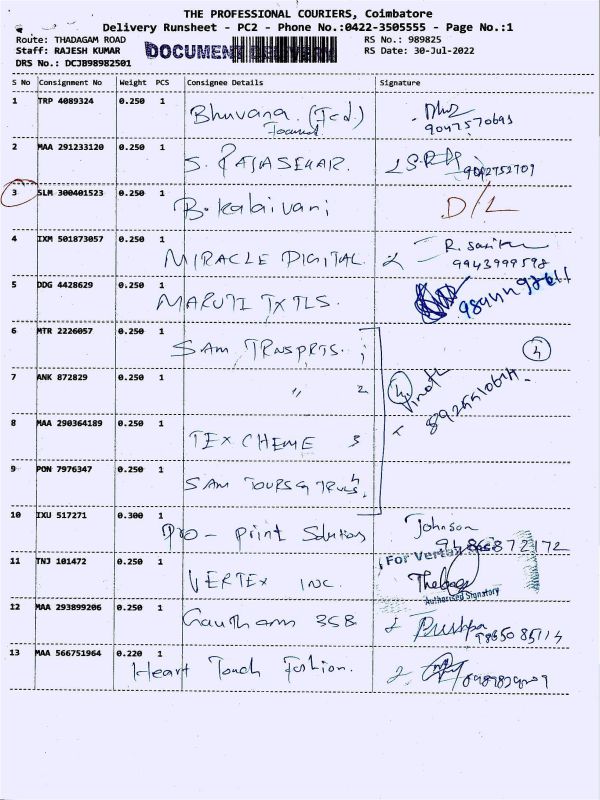 THE PROFESSIONAL COURIERS, Coimbatore
Delivery Runsheet - PC2 - Phone No.:0422-3505555 - Page No.:1
Route: THADAGAM ROAD RS No.: 989825
Staff: RAJESH KUMAR DOCUMENT DELIVERY RS Date: 30-Jul-2022
DRS No.: DCJB98982501
S No Consignment No Weight PCS Consignee Details Signature
1 TRP 4089324 0.250 1 Bhuvana (Fcd.)
9047570691
2 MAA 291233120 0.250 1 S. RAJASEKAR. 9042752709
3 SLM 300401523 0.250 1 B. Kalaivani D/L
4 IXM 501873057 0.250 1 MIRACLE DIGITAL
9943999598
5 DDG 4428629 0.250 1 MARUTI TXTLS.
6 MTR 2226057 0.250 1 SAM TRNSPRTS. 1 4
7 ANK 872829 0.250 1 " 2 4 Vinoth
8 MAA 290364189 0.250 1 TEX CHEME 3
9 PON 7976347 0.250 1 SAM TOURS & TRVLS. 4
10 IXU 517271 0.300 1 Pro - Print Solutions Johnson
9486872172
11 TNJ 101472 0.250 1 VERTEX INC. For Vertex Inc.
Authorised Signatory
12 MAA 293899206 0.250 1 Gautham 35B Pushpa
13 MAA 566751964 0.220 1 Heart Touch Fashion.